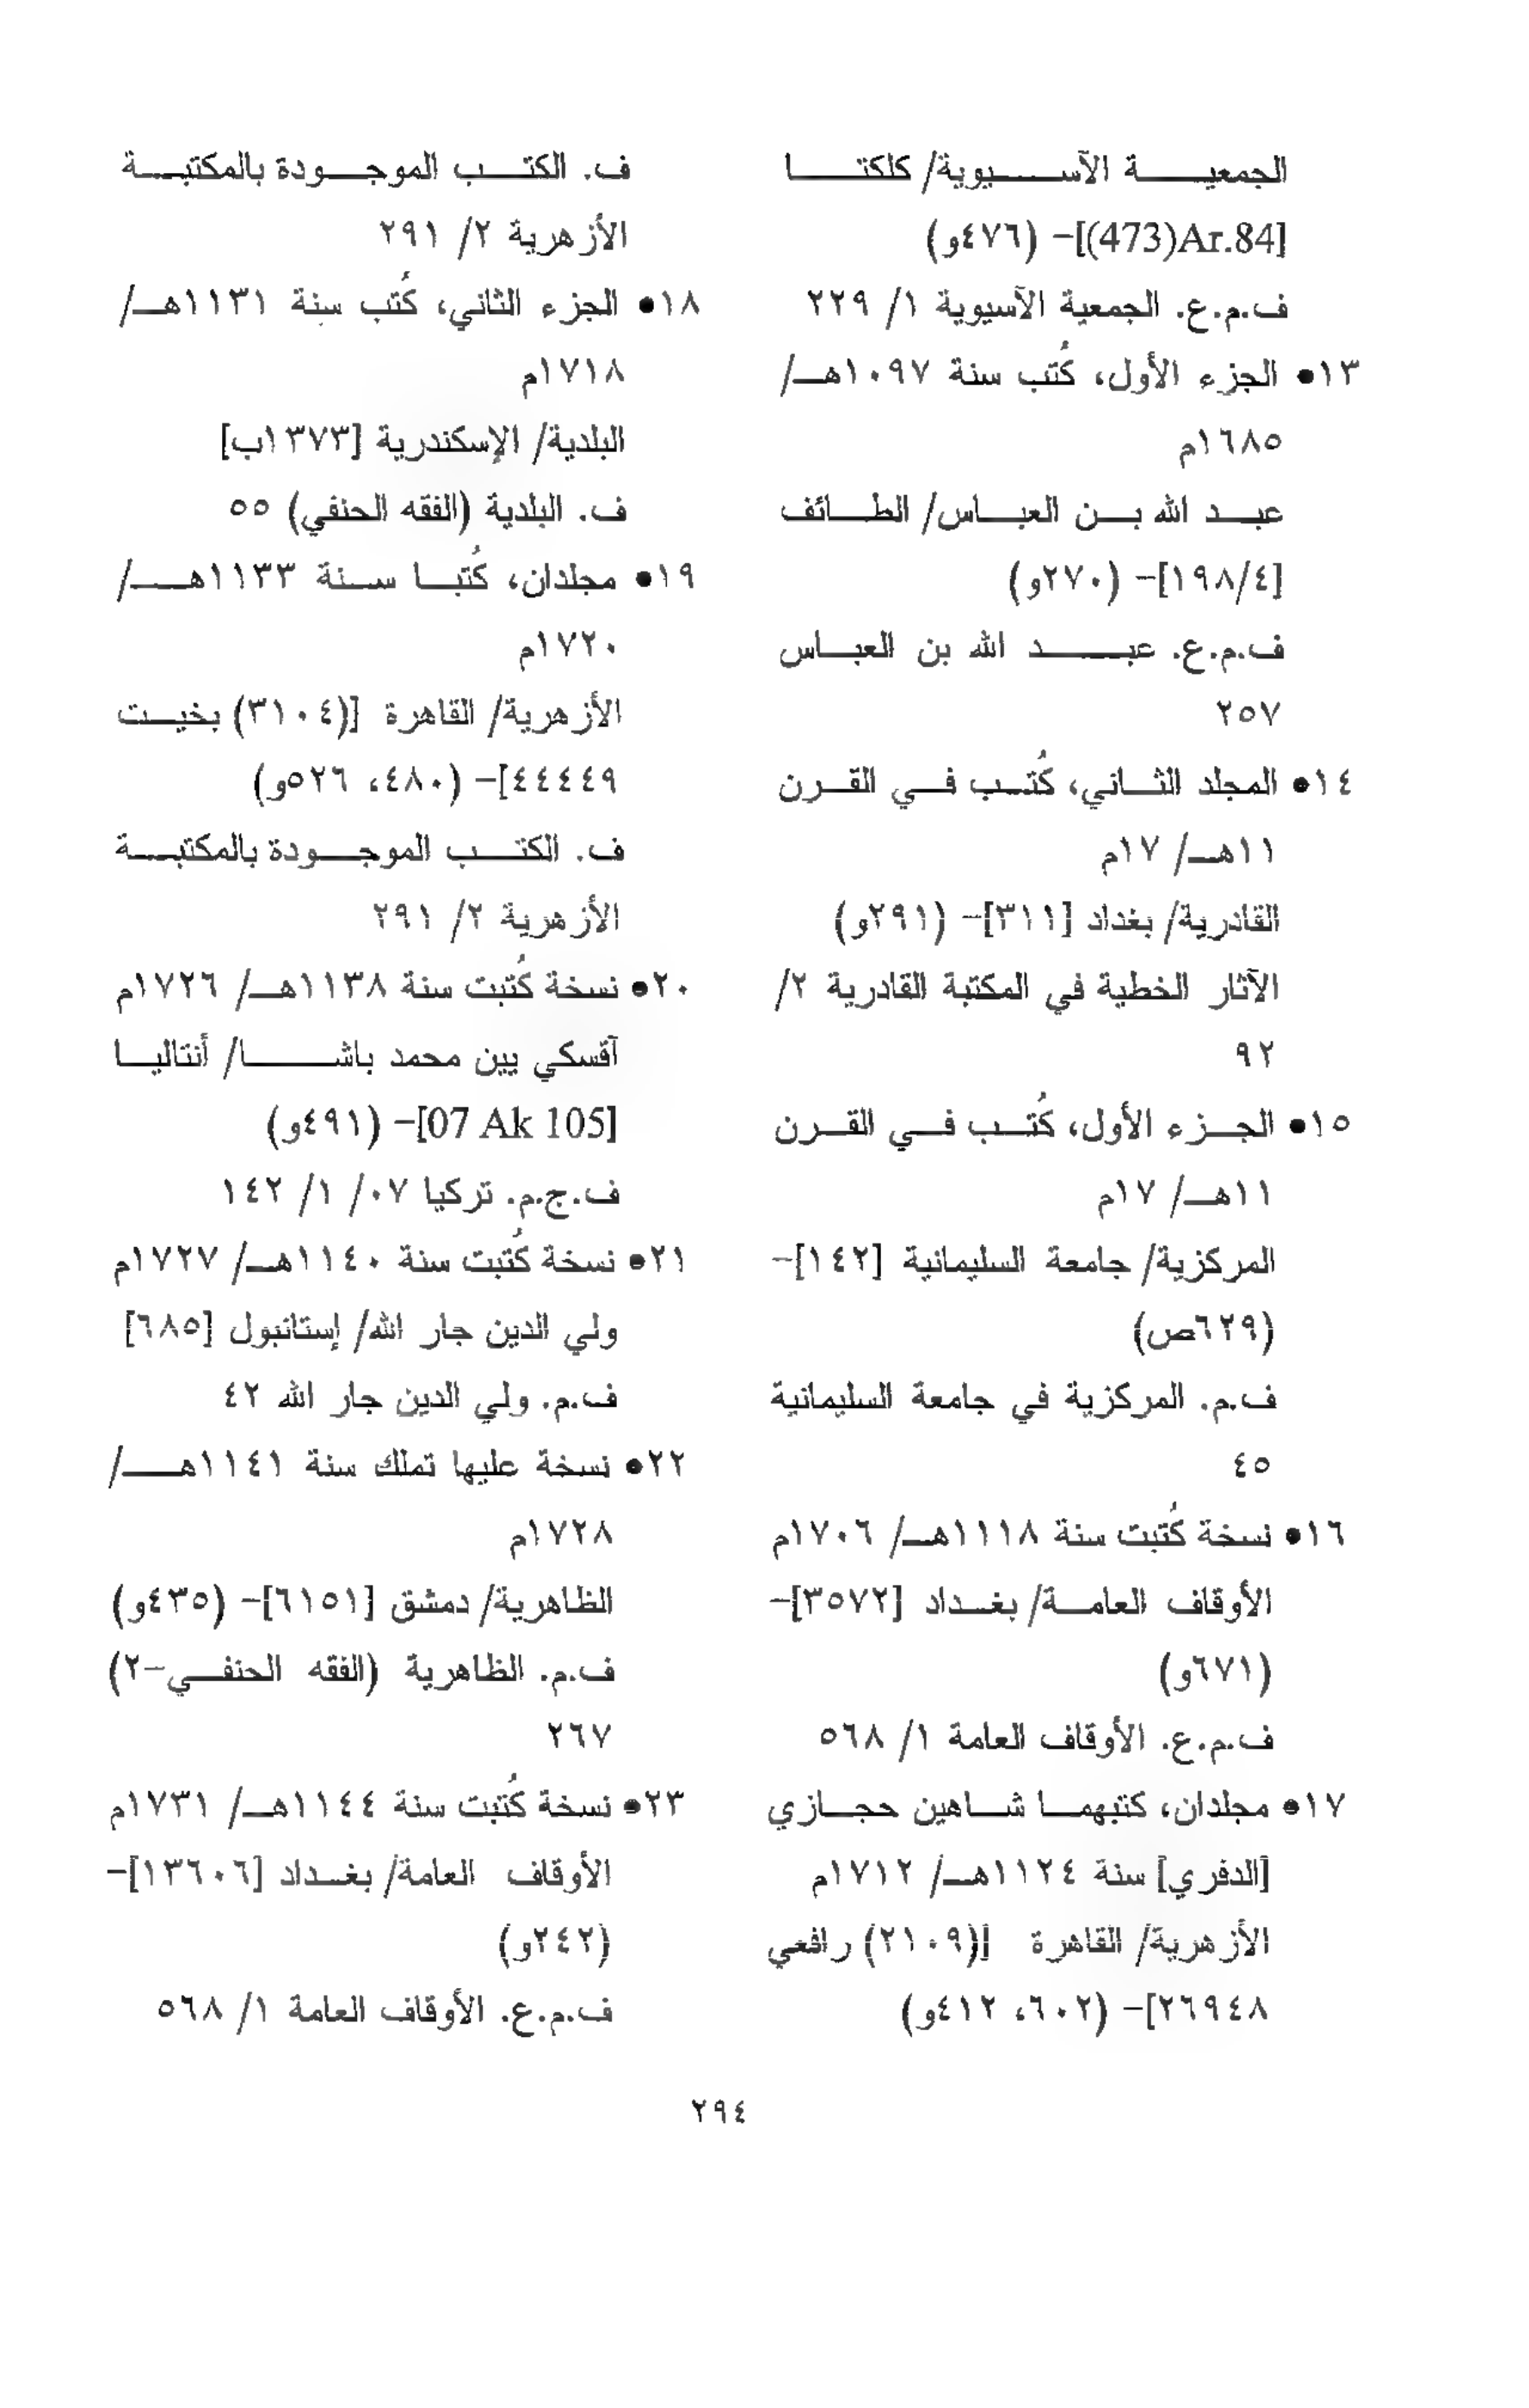 الجمعيـة الآسـيوية/ كلكتـا
[84.Ar(473)]- (٤٧٦و)
ف.م.ع. الجمعية الآسيوية ١/ ٢٢٩
١٣● الجزء الأول، كُتب سنة ١٠٩٧هـ/
١٦٨٥م
عبـد الله بـن العبـاس/ الطـائف
[١٩٨/٤]- (٢٧٠و)
ف.م.ع. عبـد الله بن العبـاس
٢٥٧
١٤● المجلد الثـاني، كُتـب فـي القـرن
١١هـ/ ١٧م
القادرية/ بغداد [٣١١]- (٢٩١و)
الآثار الخطية في المكتبة القادرية ٢/
٩٢
١٥● الجـزء الأول، كُتـب فـي القـرن
١١هـ/ ١٧م
المركزية/ جامعة السليمانية [١٤٢]-
(٦٢٩ص)
ف.م. المركزية في جامعة السليمانية
٤٥
١٦● نسخة كُتبت سنة ١١١٨هـ/ ١٧٠٦م
الأوقاف العامـة/ بغـداد [٣٥٧٢]-
(٦٧١و)
ف.م.ع. الأوقاف العامة ١/ ٥٦٨
١٧● مجلدان، كتبهمـا شـاهين حجـازي
[الدفري] سنة ١١٢٤هـ/ ١٧١٢م
الأزهرية/ القاهرة [(٢١٠٩) رافعي
٢٦٩٤٨]- (٦٠٢، ٤١٢و)
ف. الكتـب الموجـودة بالمكتبـة
الأزهرية ٢/ ٢٩١
١٨● الجزء الثاني، كُتب سنة ١١٣١هـ/
١٧١٨م
البلدية/ الإسكندرية [١٣٧٣ب]
ف. البلدية (الفقه الحنفي) ٥٥
١٩● مجلدان، كُتبـا سـنة ١١٣٣هـ/
١٧٢٠م
الأزهرية/ القاهرة [(٣١٠٤) بخيـت
٤٤٤٤٩]- (٤٨٠، ٥٢٦و)
ف. الكتـب الموجـودة بالمكتبـة
الأزهرية ٢/ ٢٩١
٢٠● نسخة كُتبت سنة ١١٣٨هـ/ ١٧٢٦م
آقسكي يين محمد باشـا/ أنتاليـا
[07 Ak 105]- (٤٩١و)
ف.ج.م. تركيا ٠٧/ ١/ ١٤٢
٢١● نسخة كُتبت سنة ١١٤٠هـ/ ١٧٢٧م
ولي الدين جار الله/ إستانبول [٦٨٥]
ف.م. ولي الدين جار الله ٤٢
٢٢● نسخة عليها تملك سنة ١١٤١هـ/
١٧٢٨م
الظاهرية/ دمشق [٦١٥١]- (٤٣٥و)
ف.م. الظاهرية (الفقه الحنفـي-٢)
٢٦٧
٢٣● نسخة كُتبت سنة ١١٤٤هـ/ ١٧٣١م
الأوقاف العامة/ بغـداد [١٣٦٠٦]-
(٢٤٢و)
ف.م.ع. الأوقاف العامة ١/ ٥٦٨
٢٩٤